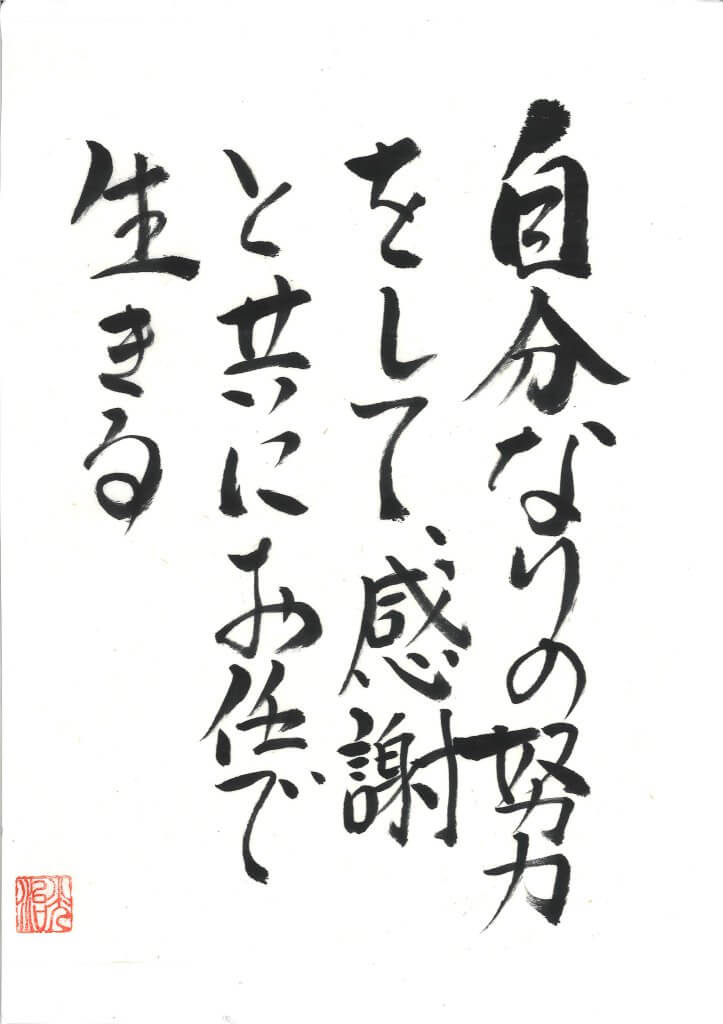 自分なりの努力
をして、感謝
と共にお任で
生きる